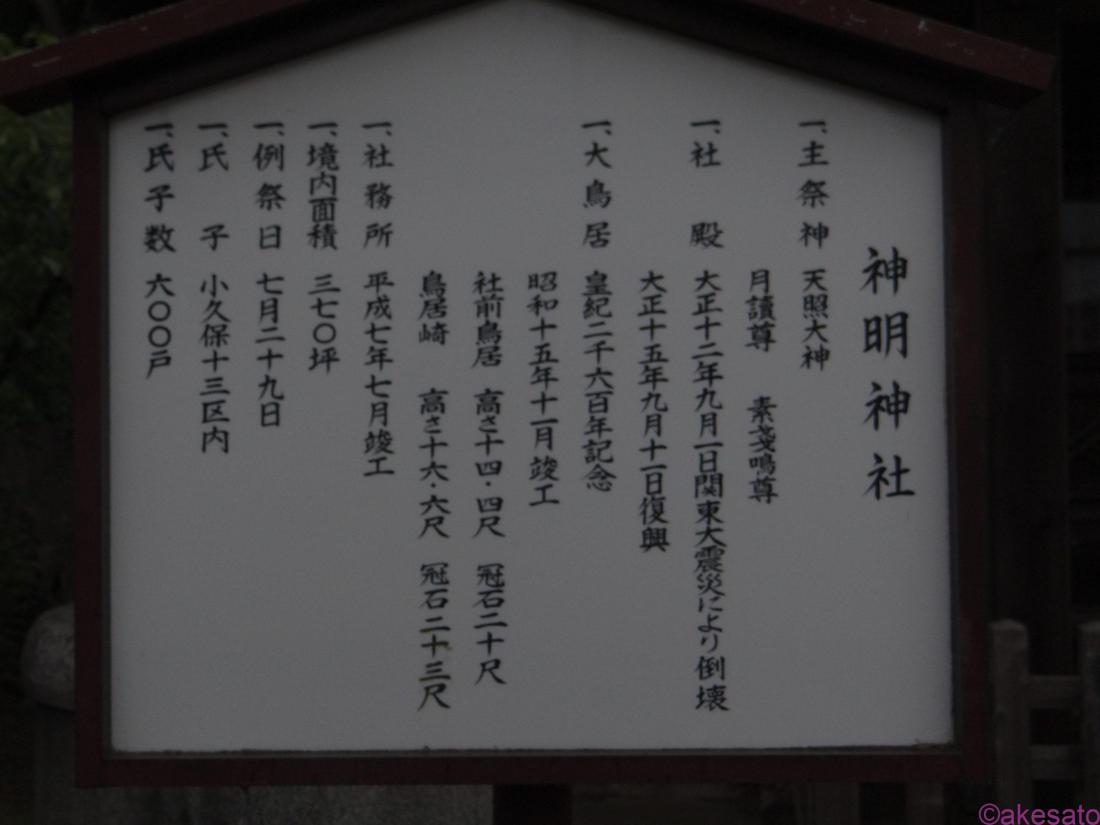 神明神社
一、主祭神 天照大神
月讀尊 素戔鳴尊
一、社殿 大正十二年九月一日関東大震災により倒壊
大正十五年九月十一日復興
一、大鳥居 皇紀二千六百年記念
昭和十五年十一月竣工
社前鳥居 高さ十四・四尺 冠石二十尺
鳥居崎 高さ十六・六尺 冠石二十三尺
一、社務所 平成七年七月竣工
一、境内面積 三七〇坪
一、例祭日 七月二十九日
一、氏子 小久保十三区内
一、氏子数 六〇〇戸
©akesato